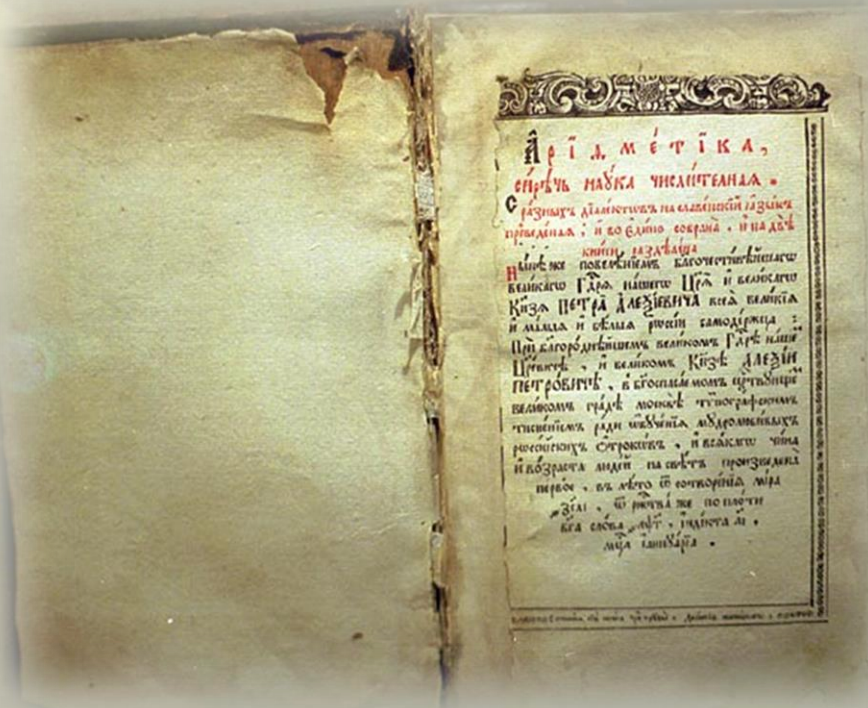 Арїѳме́тїка,
си́рѣчь наꙋ́ка числи́телная.
С ра́зныхъ дїале́ктѡвъ на славе́нскїй ꙗ҆зы́къ
преведе́ная, и҆ во є҆ди́но собрана̀, и҆ на двѣ̀
кни̑ги раздѣлена̀
Ны́нѣ же повелѣ́нїемъ благочести́вѣйшагѡ
вели́кагѡ Гдⷭ҇рѧ на́шегѡ Цр҃ѧ̀ и҆ вели́кагѡ
Кн҃зѧ ПЕТРА̀ А҆ЛЕѮІ́ЕВИЧА всеѧ̀ вели́кїѧ
и҆ ма́лыѧ и҆ бѣ́лыѧ рѡссі́и самоде́ржца:
Прѝ благоро́днѣйшемъ вели́комъ Гдⷭ҇рѣ на́шемъ
Цр҃е́вичѣ, и҆ вели́комъ Кн҃зѣ А҆ЛЕѮІ́И
ПЕТРО́ВИЧѢ, в бг҃оспаса́емомъ црⷭ҇твꙋ́ющемъ
вели́комъ гра́дѣ москвѣ̀ тѷпогра́фскимъ
тисне́нїемъ ра́ди ѡ҆бꙋче́нїѧ мꙋдролюби́выхъ
рѡссі́йскихъ ѻ҆́трокѡвъ, и҆ всѧ́кагѡ чи́на
и҆ во́зраста люде́й на свѣ́тъ произведена̀
пе́рвое, въ лѣ́то ѿ сотворе́нїѧ мі́ра
҂зсаі, ѿ рⷤтва́ же по пло́ти
бг҃а сло́ва ҂аѱг, і҆ндї́кта аі.
мцⷭ҇а і҆аннꙋа́рїа.